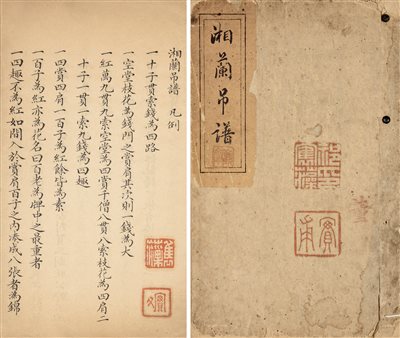 湘蘭吊譜 凡例
一十子貫索錢為四路
一空堂枝花為錢門之賞肩其次則一錢為大
一紅萬九貫九索空堂為四賞千僧八貫八索枝花為四肩二
十子一貫一索九錢為四趣
一四賞四肩一百子為紅餘皆為素
一百子為紅亦為花名曰百老為牌中之最重者
一四趣不為紅如間入於賞肩百子之內湊成八張者為錦
湘蘭吊譜